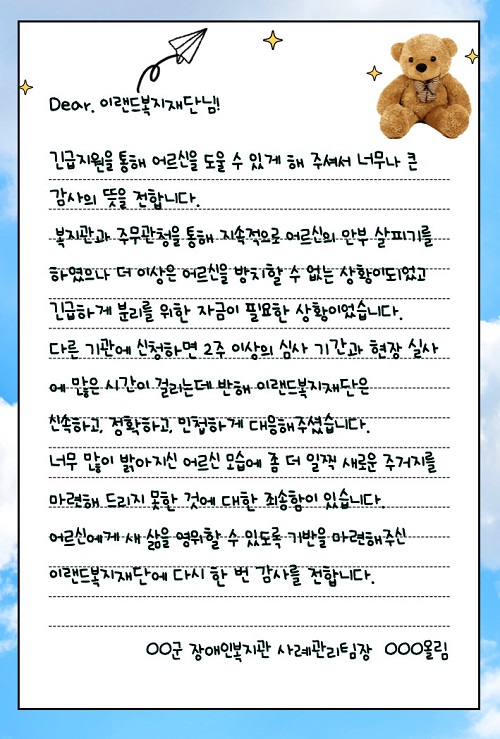 Dear. 이랜드복지재단님!
긴급지원을 통해 어르신을 도울 수 있게 해 주셔서 너무나 큰
감사의 뜻을 전합니다.
복지관과 주무관청을 통해 지속적으로 어르신의 안부 살피기를
하였으나 더 이상은 어르신을 방치할 수 없는 상황이되었고
긴급하게 분리를 위한 자금이 필요한 상황이었습니다.
다른 기관에 신청하면 2주 이상의 심사 기간과 현장 실사
에 많은 시간이 걸리는데 반해 이랜드복지재단은
신속하고, 정확하고, 민첩하게 대응해주셨습니다.
너무 많이 밝아지신 어르신 모습에 좀 더 일찍 새로운 주거지를
마련해 드리지 못한 것에 대한 죄송함이 있습니다.
어르신에게 새 삶을 영위할 수 있도록 기반을 마련해주신
이랜드복지재단에 다시 한 번 감사를 전합니다.
OO군 장애인복지관 사례관리팀장 OOO올림